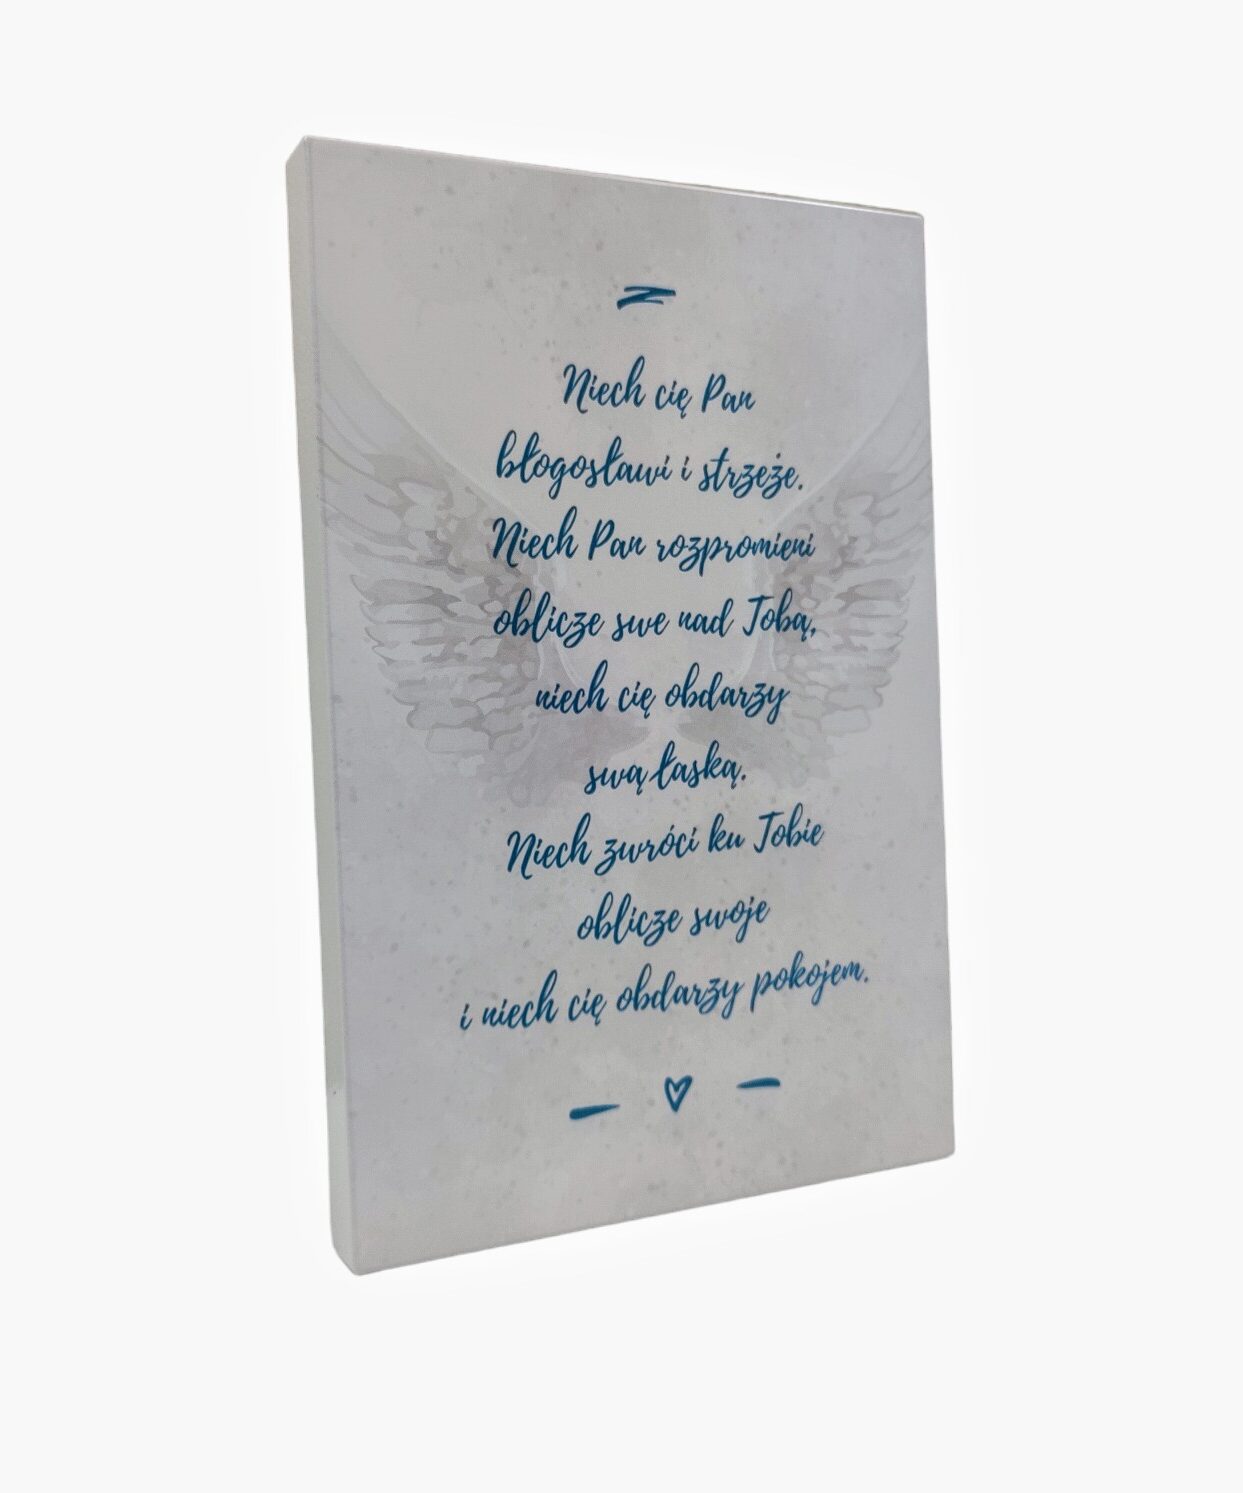 Niech cię Pan
błogosławi i strzeże.
Niech Pan rozpromieni
oblicze swe nad Tobą,
niech cię obdarzy
swą łaską.
Niech zwróci ku Tobie
oblicze swoje
i niech cię obdarzy pokojem.